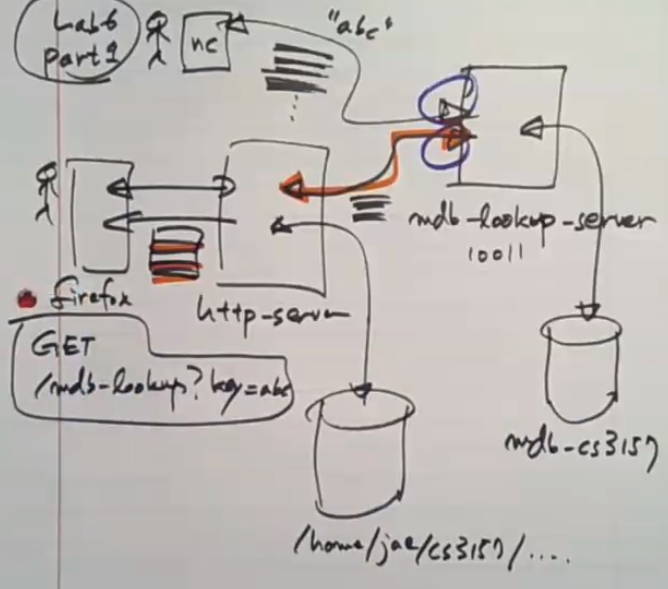 Lab6
part1
nc
"abc"
mdb-lookup-server
10011
firefox
http-server
GET
/mdb-lookup? key=abc
mdb-cs3157
/home/jae/cs3157/....